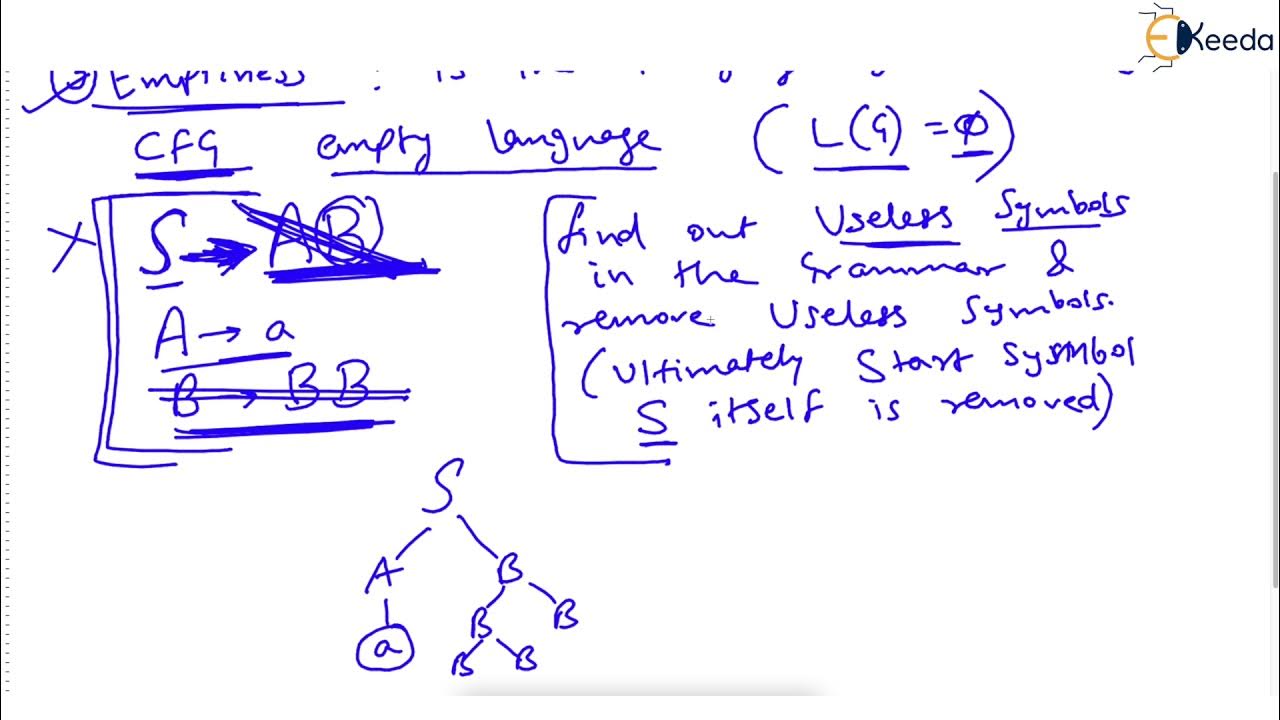 EKeeda
Emptiness :
CFG empty language ( L(G) = Φ )
S → AB
A → a
B → BB
find out Useless Symbols
in the Grammar &
remove Useless Symbols.
(Ultimately Start Sysmbol
S itself is removed)
S
A B
a B B
B B